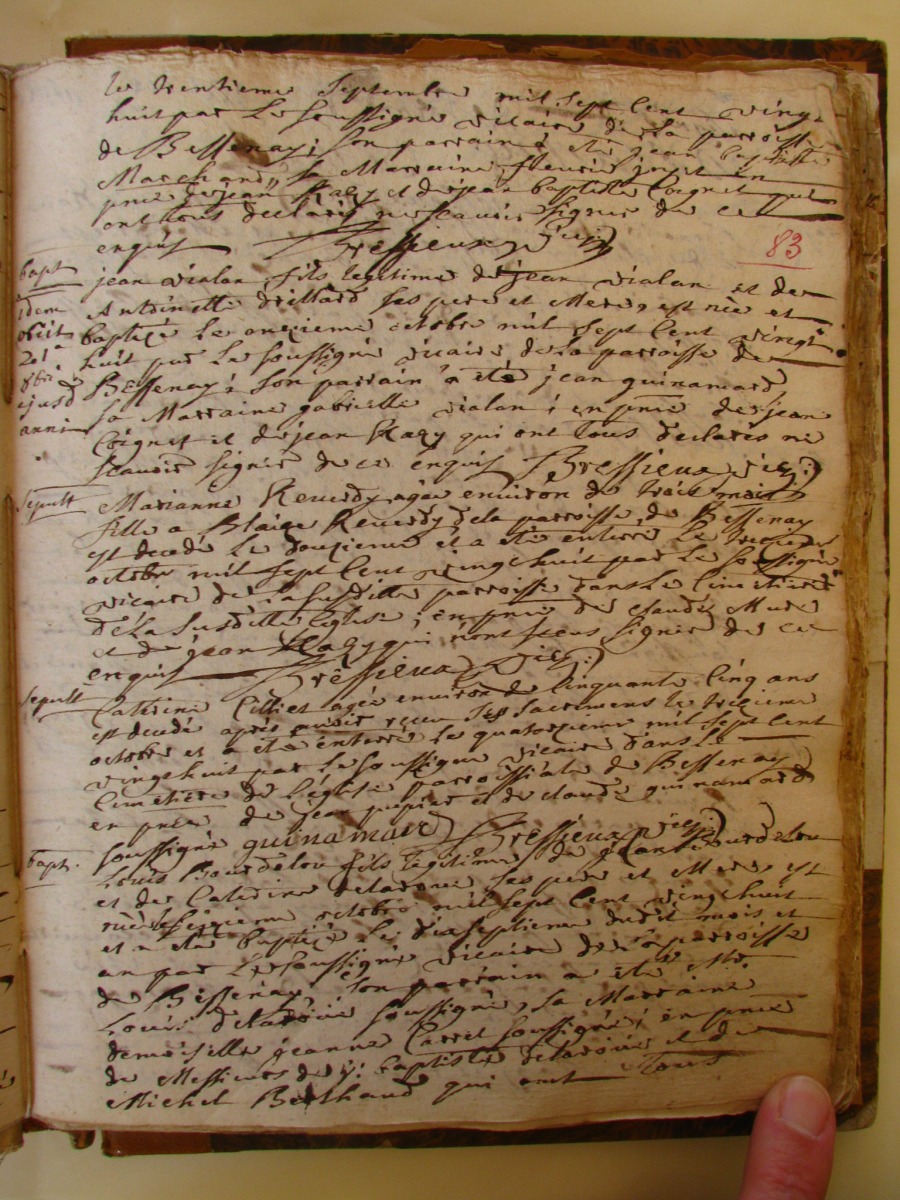 le trentieme septembre mil sept cent vingt
huit par le soussigné vicaire de la parroisse
de Bessenay; son parrain a été jean baptiste
Marchand, sa Marraine fleurie
pnce de jean Ragy et de jean baptiste Coignet qui
ont tous declarés ne scavoir signer de ce
enquis Bressieux vic.
83
bapt
jean vialan fils legitime de jean vialan et de
idem
Antoinette ses pere et Mere, est née et
obiit
baptizé le onzieme octobre mil sept cent vingt
20e
huit par le soussigné vicaire de la parroisse de
8bris
Bessenay; son parrain a été jean guinamard
ejusd
sa Marraine gabrielle vialan; en pnce de jean
anni
Coignet et de jean Ragy qui ont tous declarés ne
scavoir signer de ce enquis Bressieux vic.
sepult
Marianne Reverdy agée environ de trois mois
fille a Blaise Reverdy de la parroisse de Bessenay
est decedé le douzieme et a été enterré le treizieme
octobre mil sept cent vingt huit par le soussigné
vicaire de la susditte parroisse dans le Cimetiere
de la susditte Eglise; en pnce de claude Mure
et de jean Ragy qui n'ont sceus signer de ce
enquis Bressieux vic.
sepult
Caterine agée environ de Cinquante Cinq ans
est decedé après avoir receu ses sacremens le treizieme
octobre et a été enterré le quatorzieme mil sept cent
vingt huit par le soussigné vicaire dans le
Cimetiere de l'eglise parroissiale de Bessenay
en pnce de jean pupier et de claude guinamard
soussigné guinamard Bressieux vic.
bapt.
Louis Bourdelou fils legitime de jean Bourdelou
et de Caterine delaroue ses pere et Mere, est
née le seizieme octobre mil sept cent vingt huit
et a été baptizé le dixseptieme dudit mois et
an par le soussigné vicaire de la parroisse
de Bessenay, son parrain a été Mr.
Louis delaroue soussigné, sa Marraine
demoiselle jeanne Carret soussigné; en pnce
de Messieurs de j. baptiste delaroue et de
Michel Berthaud qui ont tous